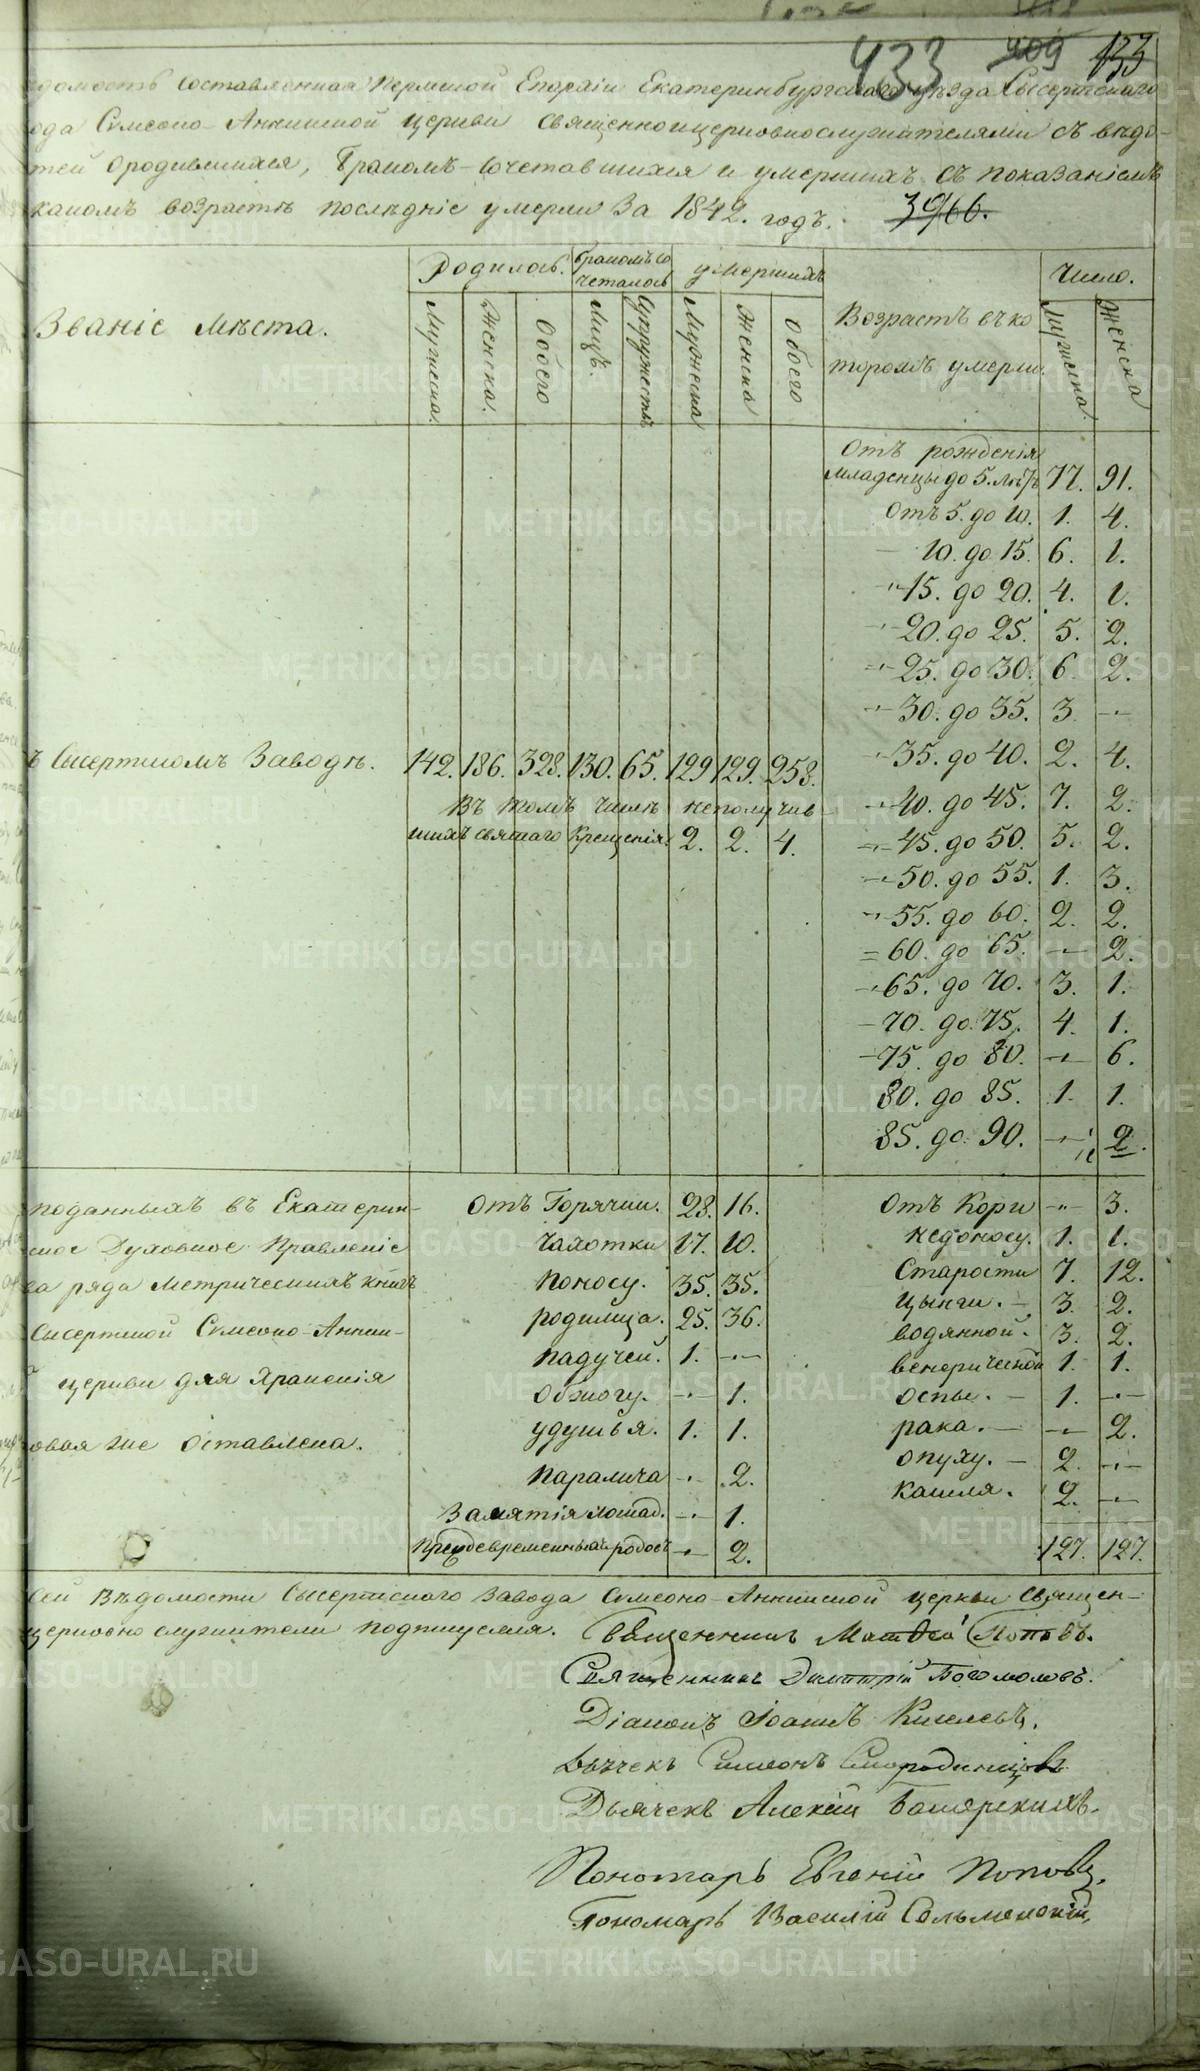 433 409 133
домость составленная Пермской Епархіи Екатеринбургскаго уѣзда Сысертскаго
ода Симеоно-Аннинской церкви священноицерковнослужителями съ вѣдо-
тей ородившихся, бракомъ-сочетавшихся и умершихъ съ показаніемъ
какомъ возрастѣ послѣдніе умерли За 1842. годъ. 3966.
Званіе мѣста.
Родилось. бракомъ со четалось умершихъ
Мужеска. Женска. Обоего Лицъ. Супружествъ Мужеска Женска Обоего
Возрастъ въ ко
торомъ умерли.
Число.
Мужеска. Женска
Отъ рожденія
младенцы до 5. лѣтъ 77. 91.
Отъ 5. до 10. 1. 4.
— 10. до 15. 6. 1.
-"- 15. до 20. 4. 1.
-"- 20. до 25. 5. 2.
-"- 25. до 30. 6. 2.
-"- 30. до 35. 3. -"-
ъ Сысертскомъ Заводѣ. 142. 186. 328. 130. 65. 129. 129. 258.
-"- 35. до 40. 2. 4.
Въ томъ числѣ неполучив
шихъ святаго Крещенія. 2. 2. 4.
-"- 40. до 45. 7. 2.
-"- 45. до 50. 5. 2.
-"- 50. до 55. 1. 3.
-"- 55. до 60. 2. 2.
= 60. до 65. -"- 2.
-"- 65. до 70. 3. 1.
— 70. до 75. 4. 1.
— 75. до 80. -"- 6.
80. до 85. 1. 1.
85. до 90. -"- 2.
поданныхъ въ Екатерин-
ское Духовное Правленіе
ва ряда Метрическихъ книгъ
Сысертской Симеоно-Аннин-
й церкви для Храненія
овая же оставлена.
Отъ Горячки. 28. 16.
Чахотки 17. 10.
Поносу. 35. 35.
родимца. 25. 36.
Падучей. 1. -"-
Обжогу. -"- 1.
удушья. 1. 1.
Паралича -"- 2.
Замятія лошад. -"- 1.
Преждевременныхъ родовъ -"- 2.
Отъ Кори -"- 3.
Недоносу. 1. 1.
Старости 7. 12.
Цынги. — 3. 2.
водянной. 3. 2.
венерической 1. 1.
оспы. — 1. -"-
рака. — -"- 2.
опуху. — 2. -"-
кашля. 2. -"-
127. 127.
сей Вѣдомости Сысертскаго Завода Симеоно-Аннинской церкви Священ-
церковно служители подписуемся. Священникъ Матѳей Поповъ.
Священникъ Димитрій Богомоловъ.
Діаконъ Іоаннъ Киселевъ.
Дьячекъ Симеонъ Смородинцовъ
Дьячекъ Алексій Башярскихъ.
Пономарь Евгеній Поповъ.
Пономарь Василій Сельменскій
METRIKI.GASO-URAL.RU